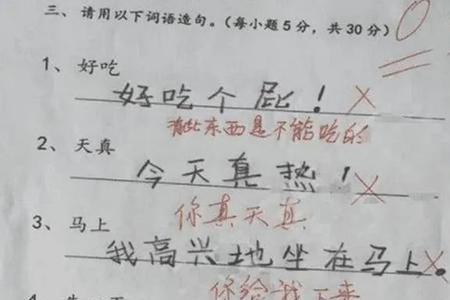 三、请用以下词语造句。(每小题5分,共30分) 0
1、好吃
好吃个屁!
有些东西是不能吃的
2、天真
今天真热!
你真天真
3、马上
我高兴地坐在马上。
你给我下来